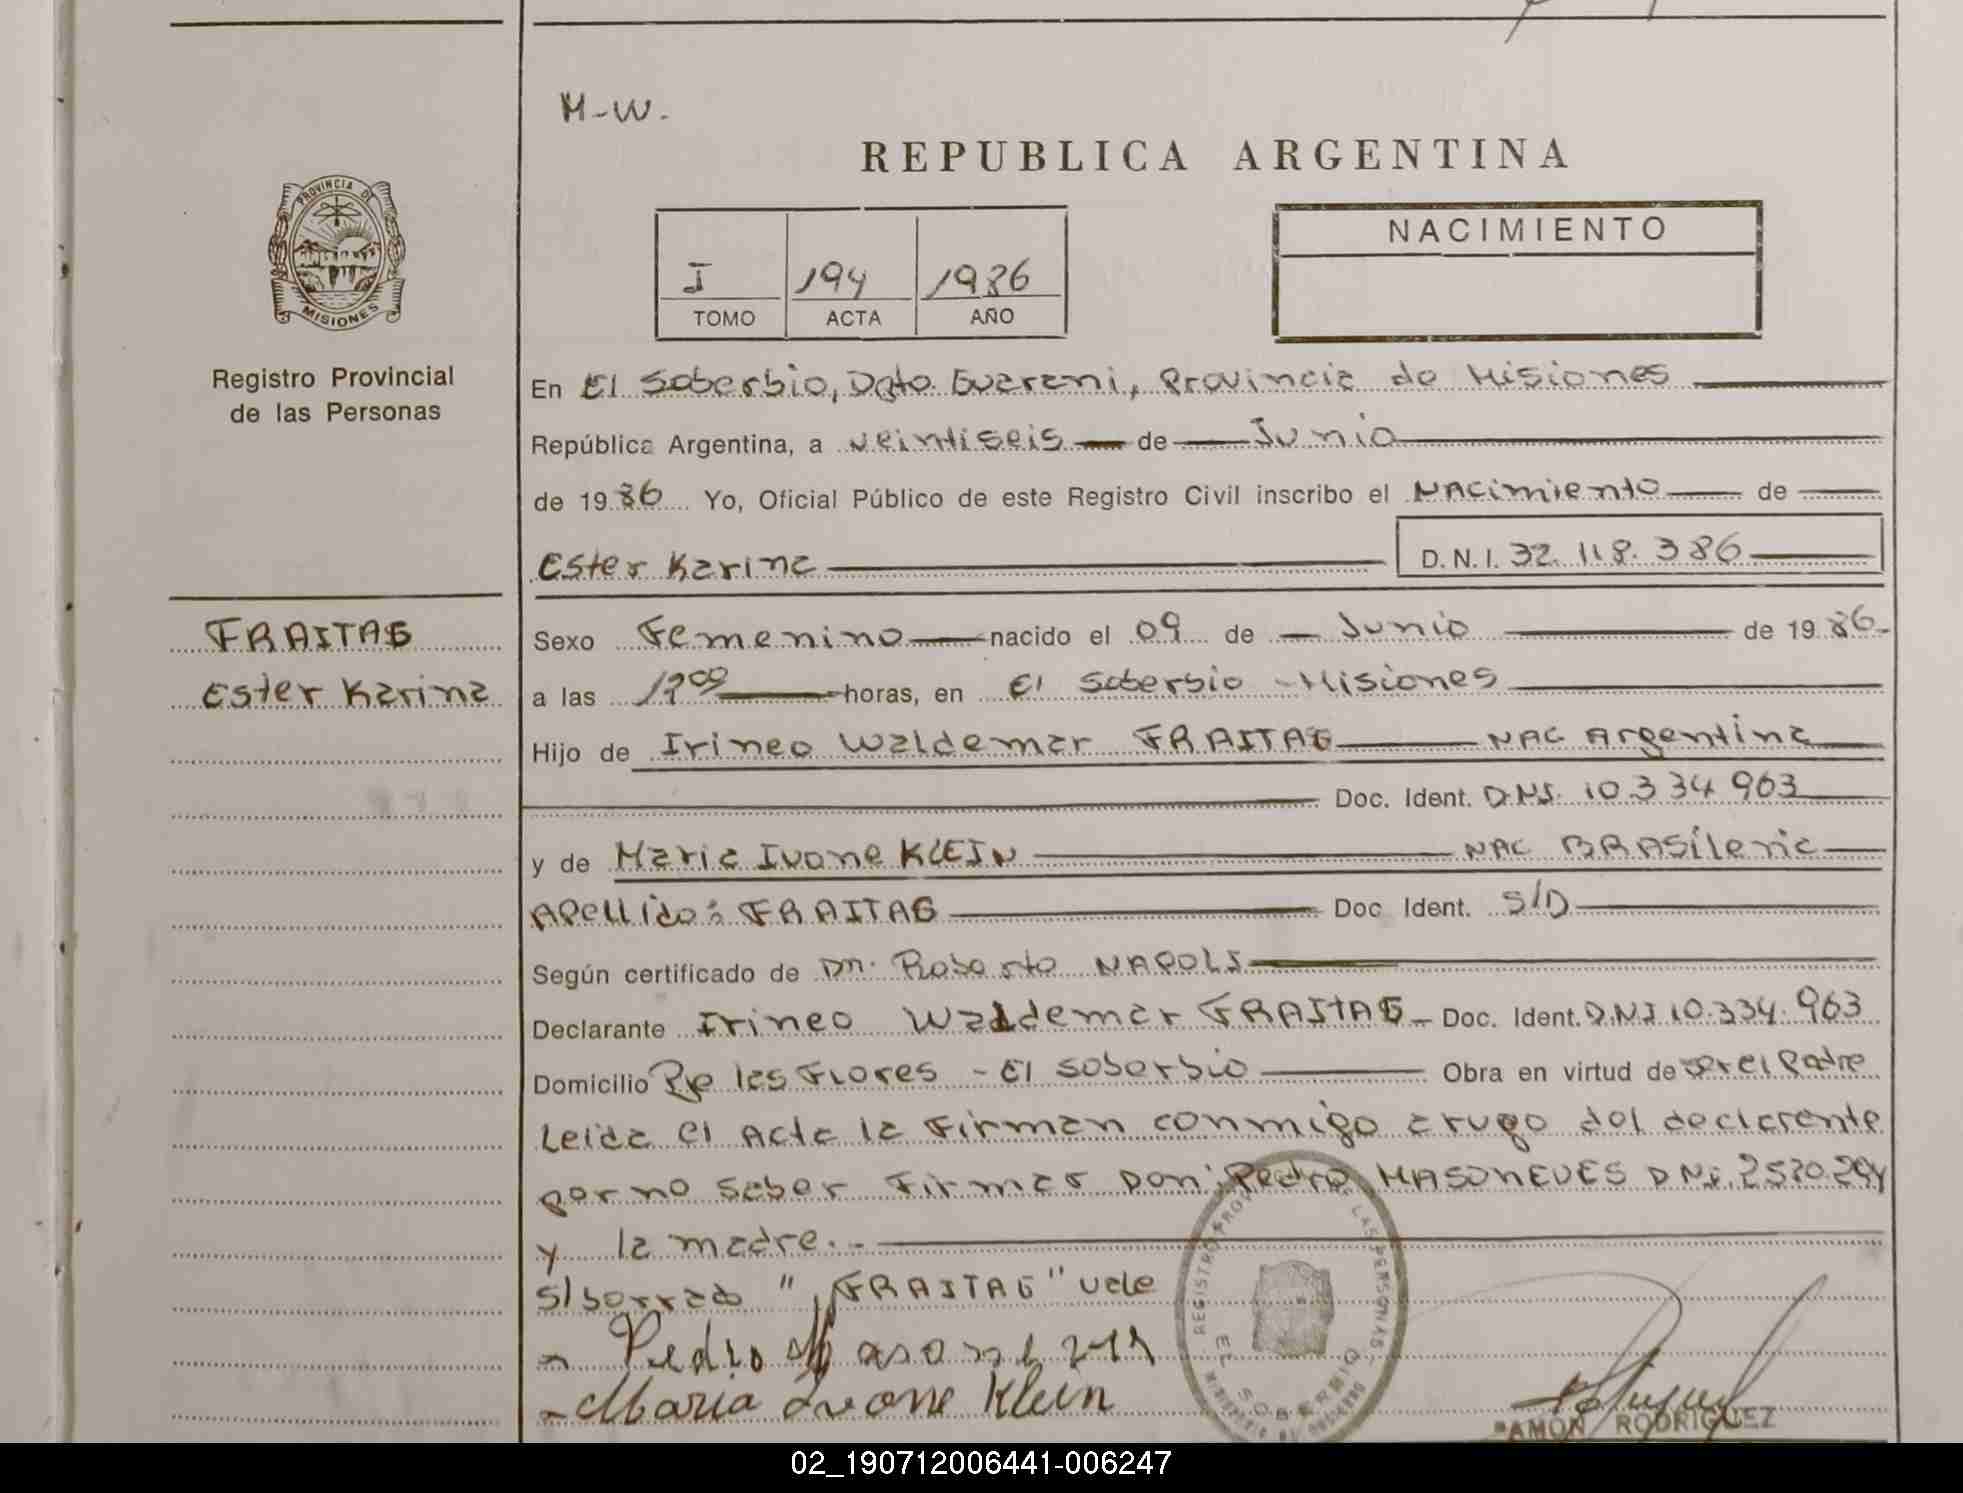 M-W.
REPUBLICA ARGENTINA
PROVINCIA DE
MISIONES
Registro Provincial
de las Personas
I 194 1986
TOMO ACTA AÑO
NACIMIENTO
En El Soberbio, Dpto. Guarani, Provincia de Misiones
República Argentina, a veintiseis de Junio
de 19 86 Yo, Oficial Público de este Registro Civil inscribo el NACimiento de
Ester Karina D.N.I. 32.118.386
FRAITAG
Ester Karina
Sexo Femenino nacido el 09 de Junio de 19 86
a las horas, en El Soberbio - Misiones
Hijo de Irineo Waldemar FRAITAG NAC Argentina
Doc. Ident. D.N.I. 10.334.963
y de Maria Ivone KLEIN NAC BRASileria
Apellido: FRAITAG Doc. Ident. S/D
Según certificado de Dr. Roberto NAPOLI
Declarante Irineo Waldemar FRAITAG Doc. Ident. D.N.I 10.334.963
Domicilio las Flores - El Soberbio Obra en virtud de ser el Padre
Leida el Acta la Firman conmigo a rugo del declarante
por no saber Firmar Don: Pedro MASONEVES D.N.I. 2.570.294
y la madre.-
s/borrado "FRAITAG" vale
- Pedro
- Maria Ivone Klein
REGISTRO PROV. DE LAS PERSONAS
EL SOBERBIO
RAMON RODRIGUEZ
02_190712006441-006247